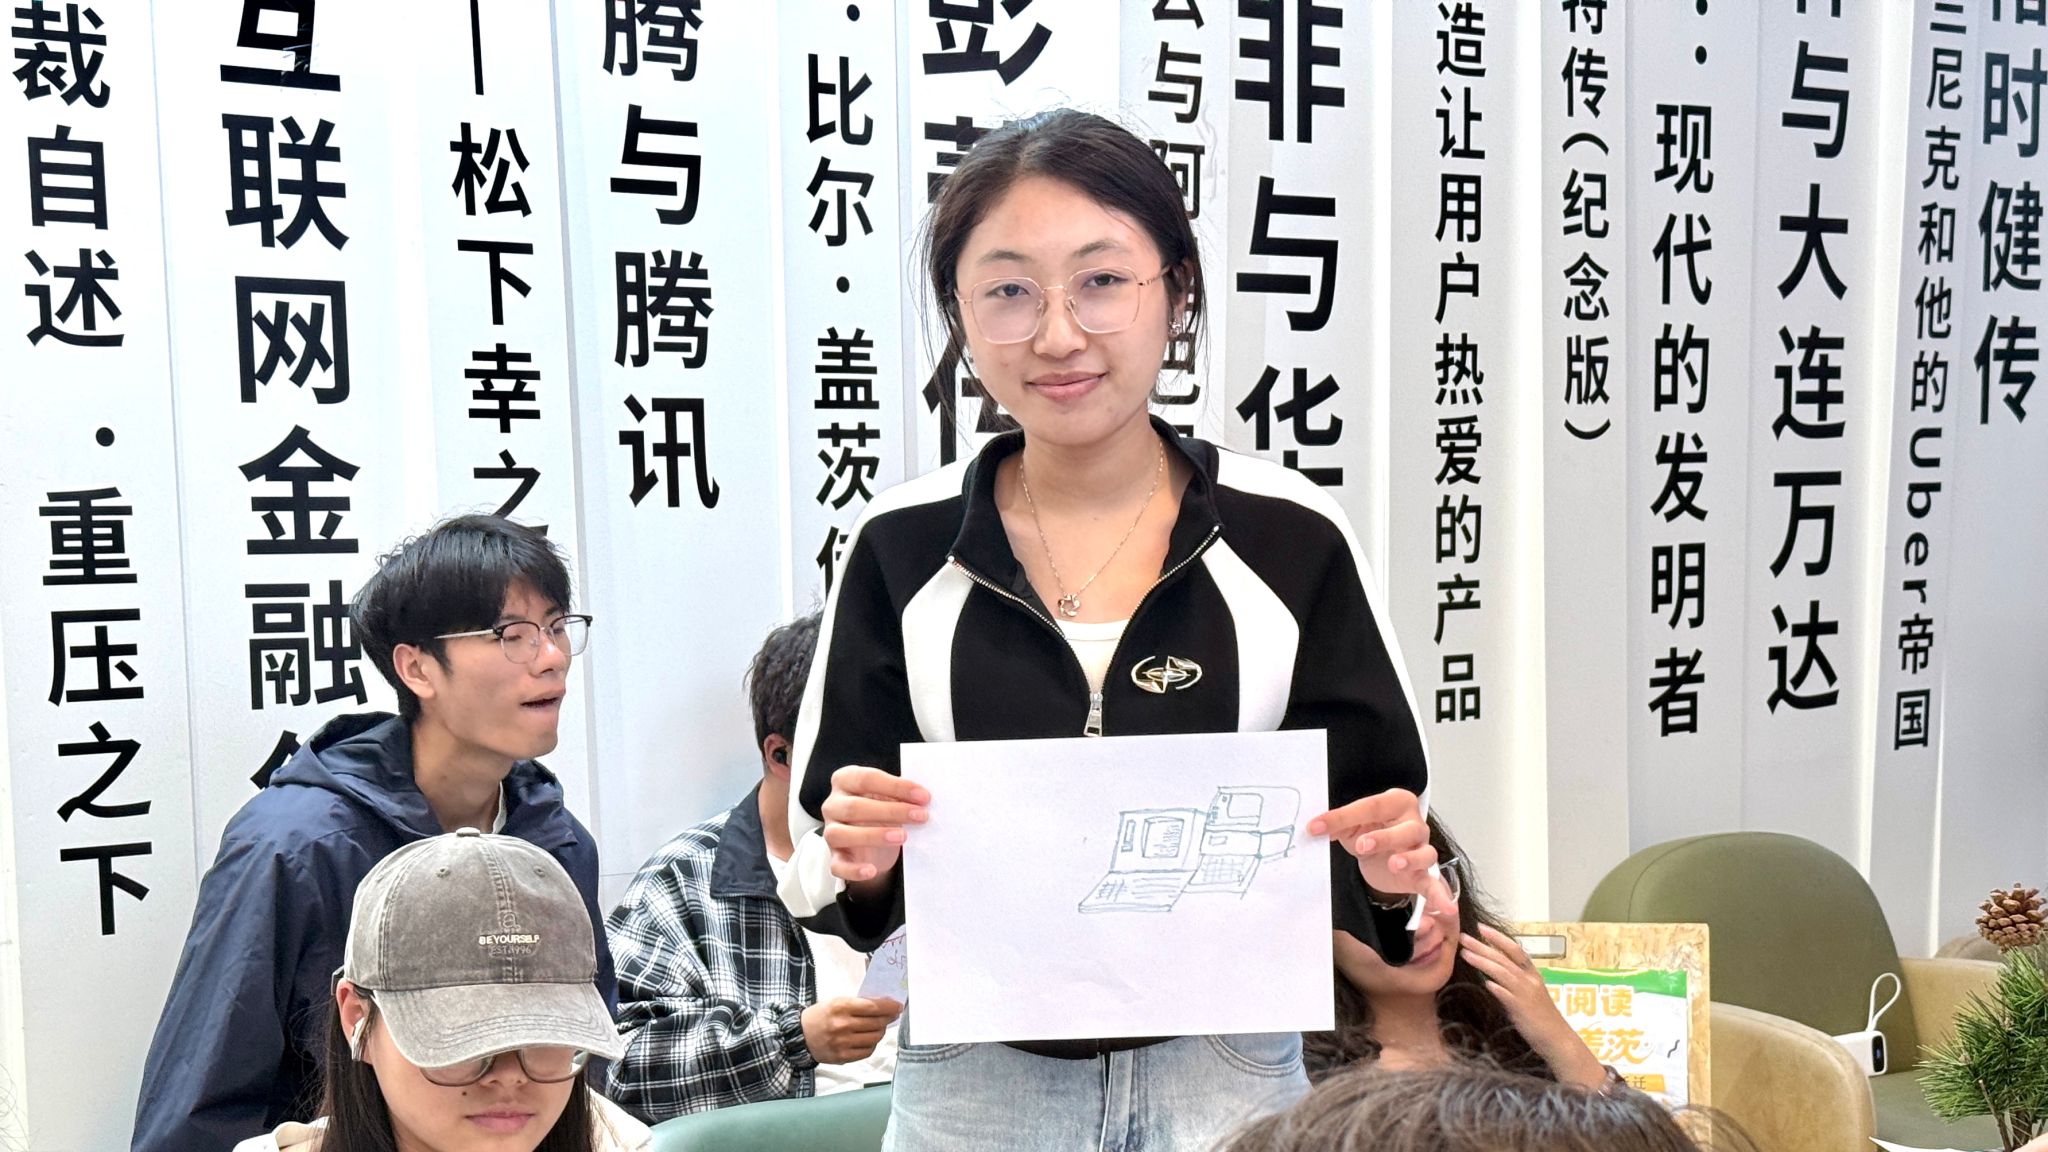 裁自述·重压之下
互联网金融
—松下幸之
腾与腾讯
·比尔·盖茨传
彭
与阿
非与华
造让用户热爱的产品
特传(纪念版)
:现代的发明者
与大连万达
兰尼克和他的Uber帝国
时健传
BE YOURSELF
EST.1996
阅读
盖茨